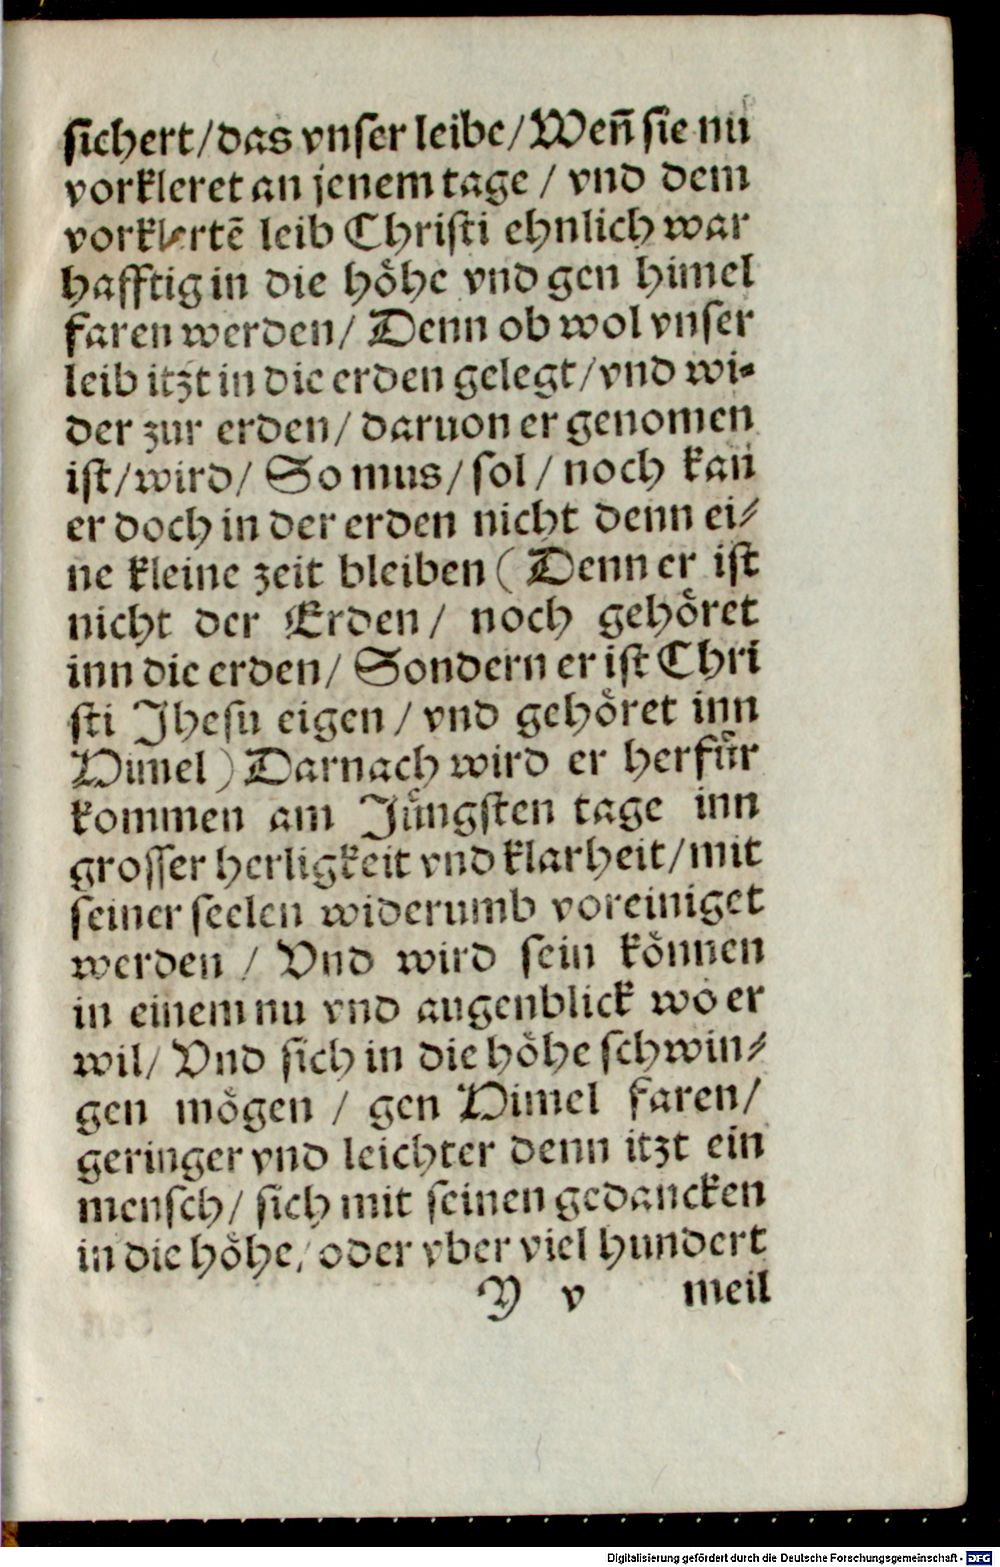 sichert/das vnser leibe/Weñ sie nu
vorkleret an jenem tage / vnd dem
vorklertē leib Christi ehnlich war
hafftig in die höhe vnd gen himel
faren werden/ Denn ob wol vnser
leib itzt in die erden gelegt/vnd wi-
der zur erden/ daruon er genomen
ist/wird/ So mus/sol/ noch kan
er doch in der erden nicht denn ei-
ne kleine zeit bleiben (Denn er ist
nicht der Erden/ noch gehöret
inn die erden/ Sondern er ist Chri
sti Jhesu eigen / vnd gehöret inn
Himel) Darnach wird er herfür
kommen am Jüngsten tage inn
grosser herligkeit vnd klarheit/mit
seiner seelen widerumb voreiniget
werden / Vnd wird sein können
in einem nu vnd augenblick wo er
wil/ Vnd sich in die höhe schwin-
gen mögen / gen Himel faren/
geringer vnd leichter denn itzt ein
mensch/ sich mit seinen gedancken
in die höhe/ oder vber viel hundert
Y v meil
Digitalisierung gefördert durch die Deutsche Forschungsgemeinschaft - DFG